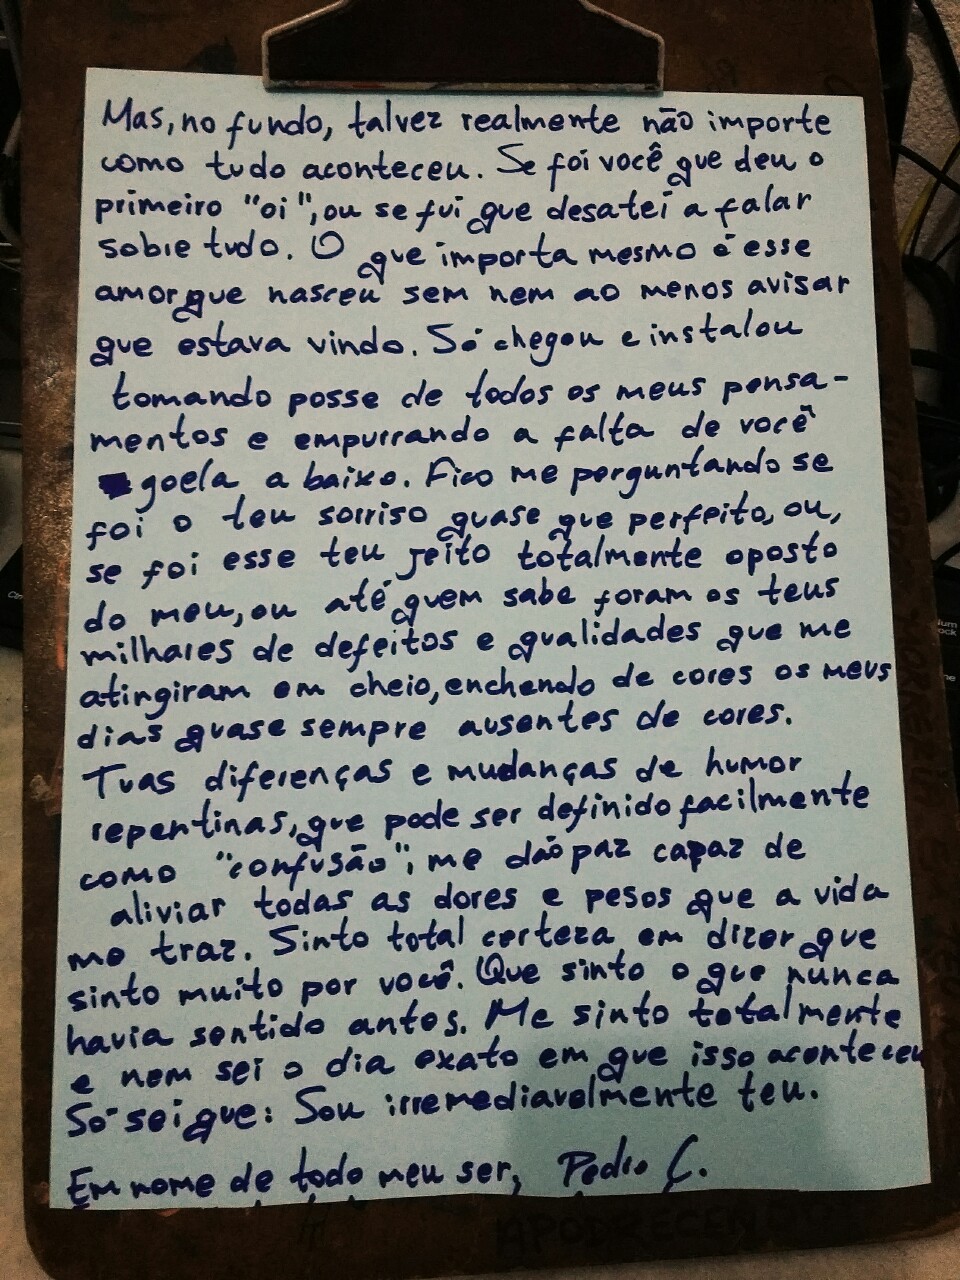 Mas, no fundo, talvez realmente não importe
como tudo aconteceu. Se foi você que deu o
primeiro "oi", ou se fui que desatei a falar
sobre tudo. O que importa mesmo é esse
amor que nasceu sem nem ao menos avisar
que estava vindo. Só chegou e instalou
tomando posse de todos os meus pensa-
mentos e empurrando a falta de você
goela a baixo. Fico me perguntando se
foi o teu sorriso quase que perfeito, ou,
se foi esse teu jeito totalmente oposto
do meu, ou até quem sabe foram os teus
milhares de defeitos e qualidades que me
atingiram em cheio, enchendo de cores os meus
dias quase sempre ausentes de cores.
Tuas diferenças e mudanças de humor
repentinas, que pode ser definido facilmente
como "confusão", me dão paz capaz de
aliviar todas as dores e pesos que a vida
me traz. Sinto total certeza em dizer que
sinto muito por você. Que sinto o que nunca
havia sentido antes. Me sinto totalmente
e nem sei o dia exato em que isso aconteceu
Só sei que: Sou irremediavelmente teu.
Em nome de todo meu ser, Pedro Ç.